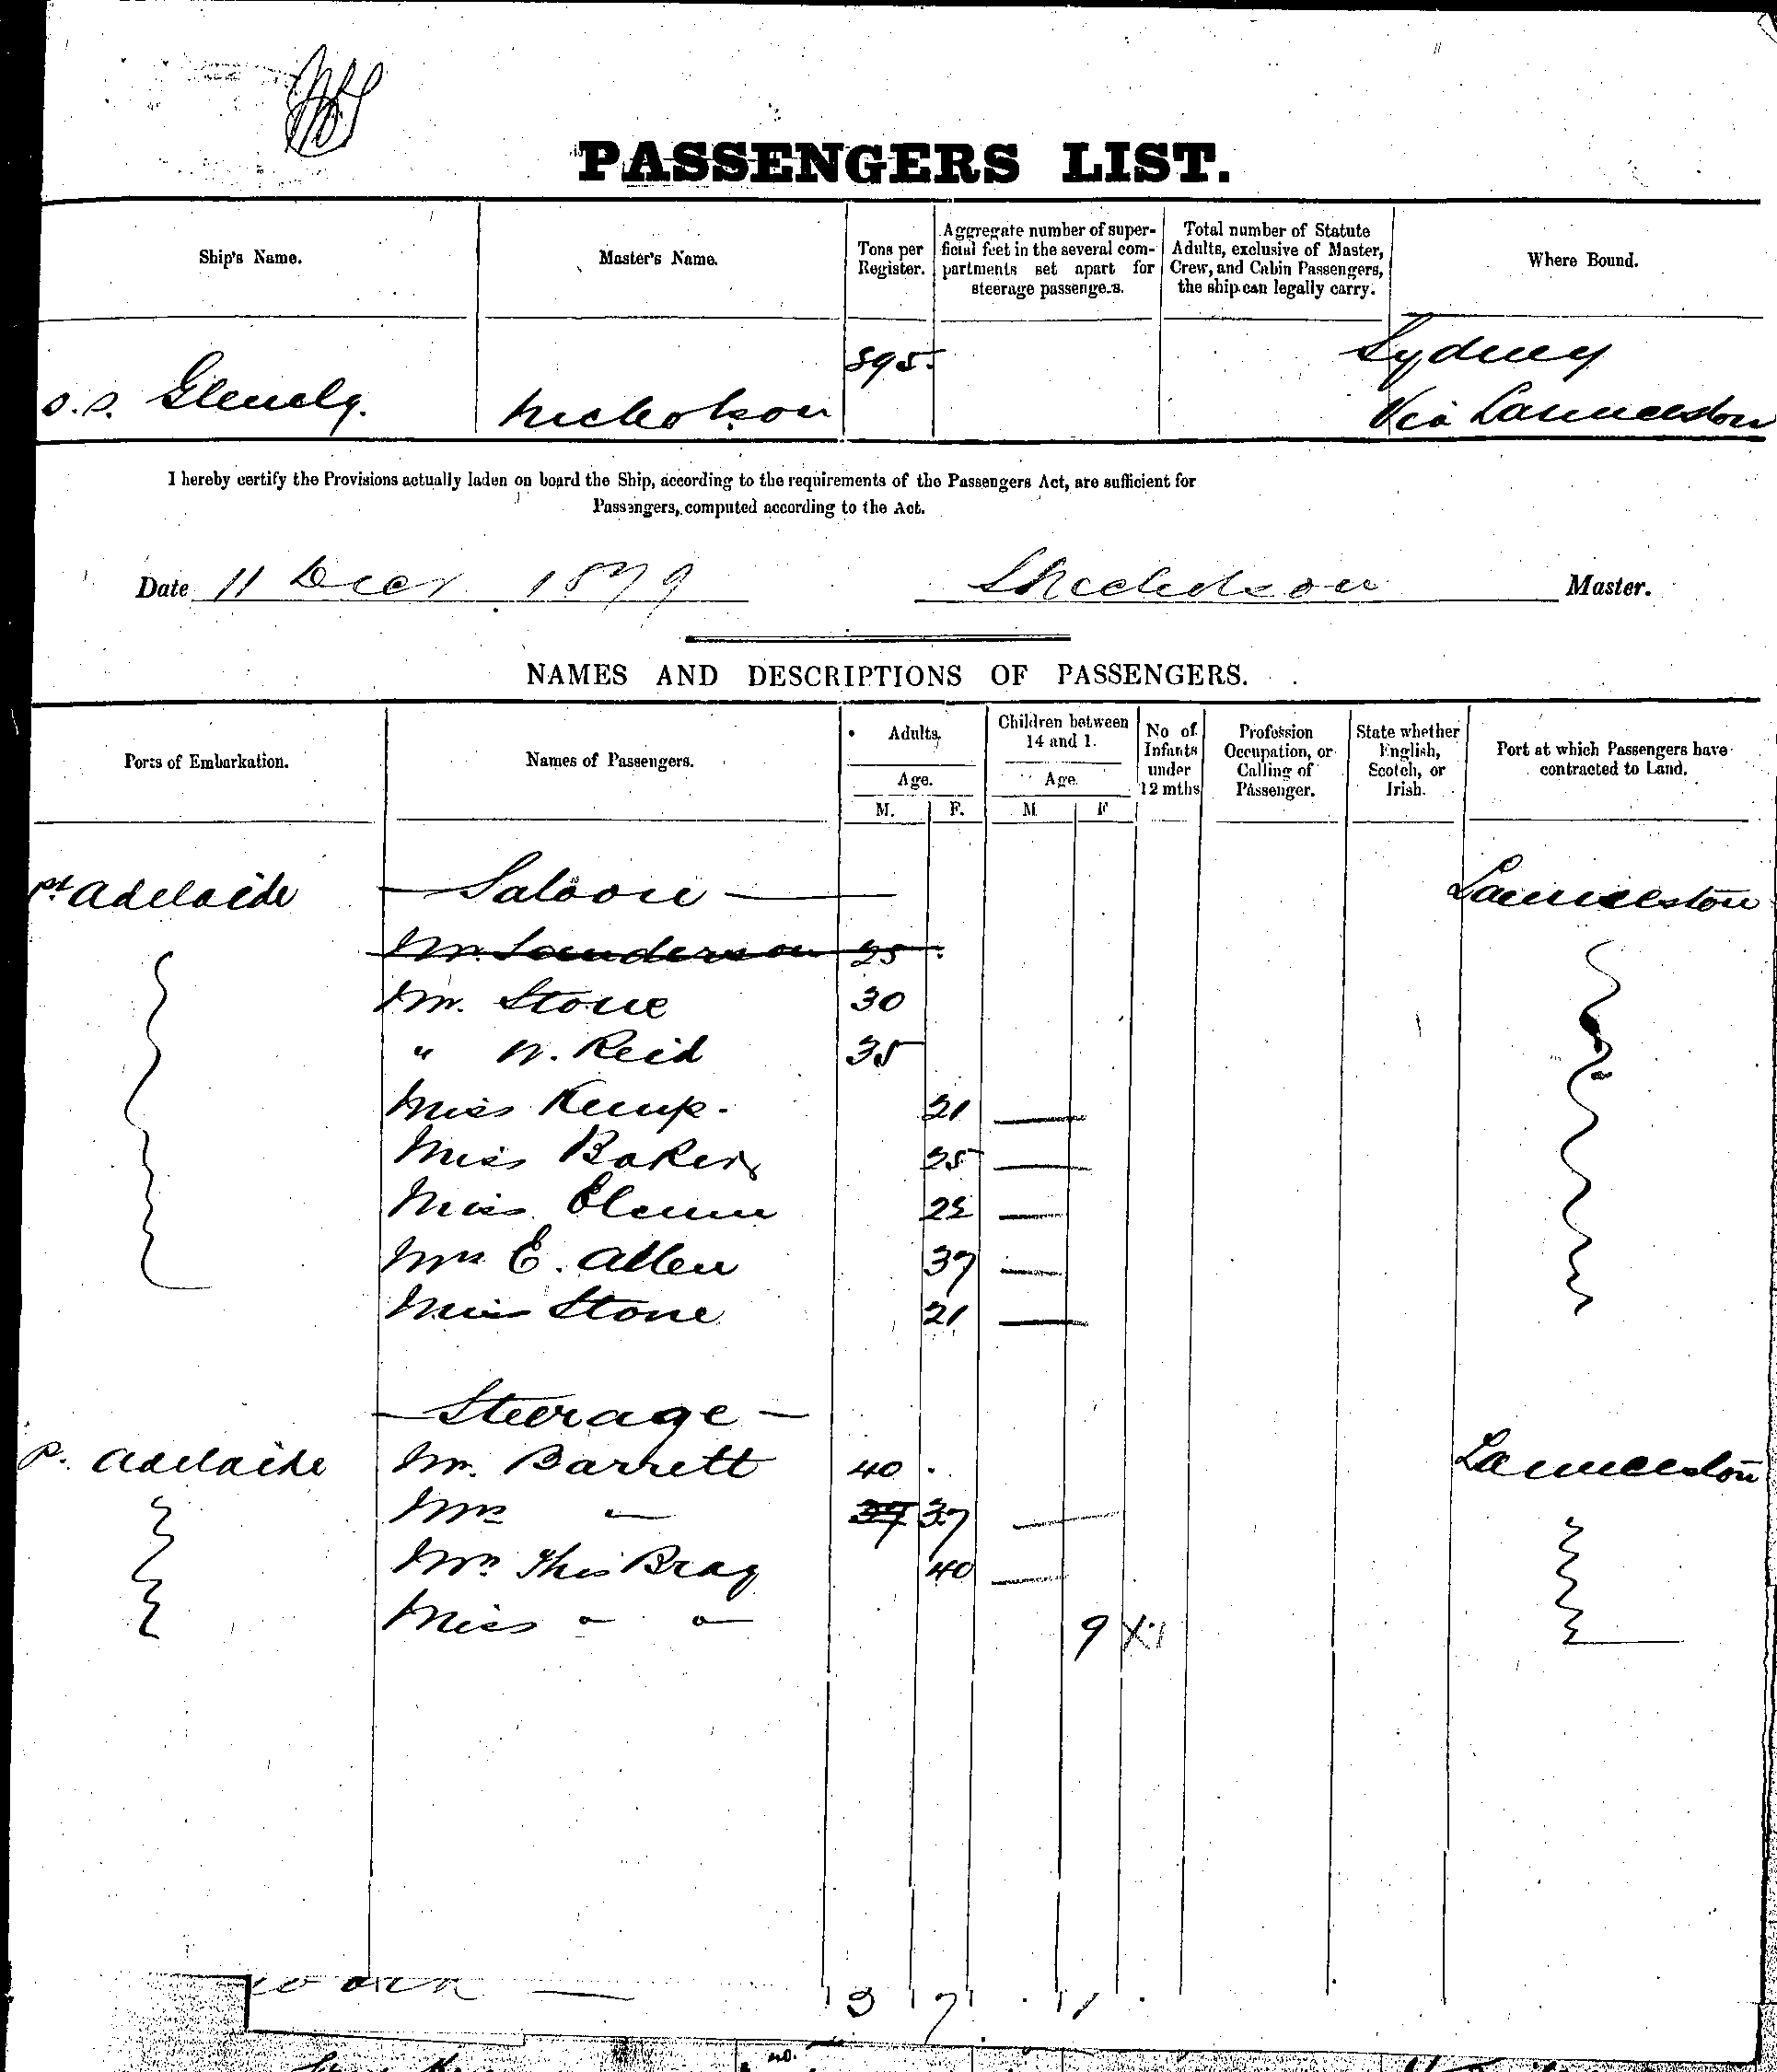 PASSENGERS LIST.
Ship's Name.
Master's Name.
Tons per Register.
Aggregate number of superficial feet in the several compartments set apart for steerage passengers.
Total number of Statute Adults, exclusive of Master, Crew, and Cabin Passengers, the ship can legally carry.
Where Bound.
s.s. Glenelg. Nicholson 895. Sydney
Via Launceston
I hereby certify the Provisions actually laden on board the Ship, according to the requirements of the Passengers Act, are sufficient for
Passengers, computed according to the Act.
Date 11 Decr 1879 Nicholson Master.
NAMES AND DESCRIPTIONS OF PASSENGERS.
Ports of Embarkation.
Names of Passengers.
Adults.
Age.
M. F.
Children between 14 and 1.
Age.
M F
No of Infants under 12 mths
Profession Occupation, or Calling of Passenger.
State whether English, Scotch, or Irish.
Port at which Passengers have contracted to Land.
Pt Adelaide — Saloon — Launceston
Mr. Sanderson 25
Mr. Stone 30
" W. Reid 35
Miss Kemp. 21 —
Miss Baker 25 —
Miss 22 —
Mrs E. Allen 37 —
Miss Stone 21 —
— Steerage —
P. Adelaide Mr. Barrett 40 Launceston
Mrs — 37 37 —
Mrs Brag 40 —
Miss " " 9 X1
3 7 1